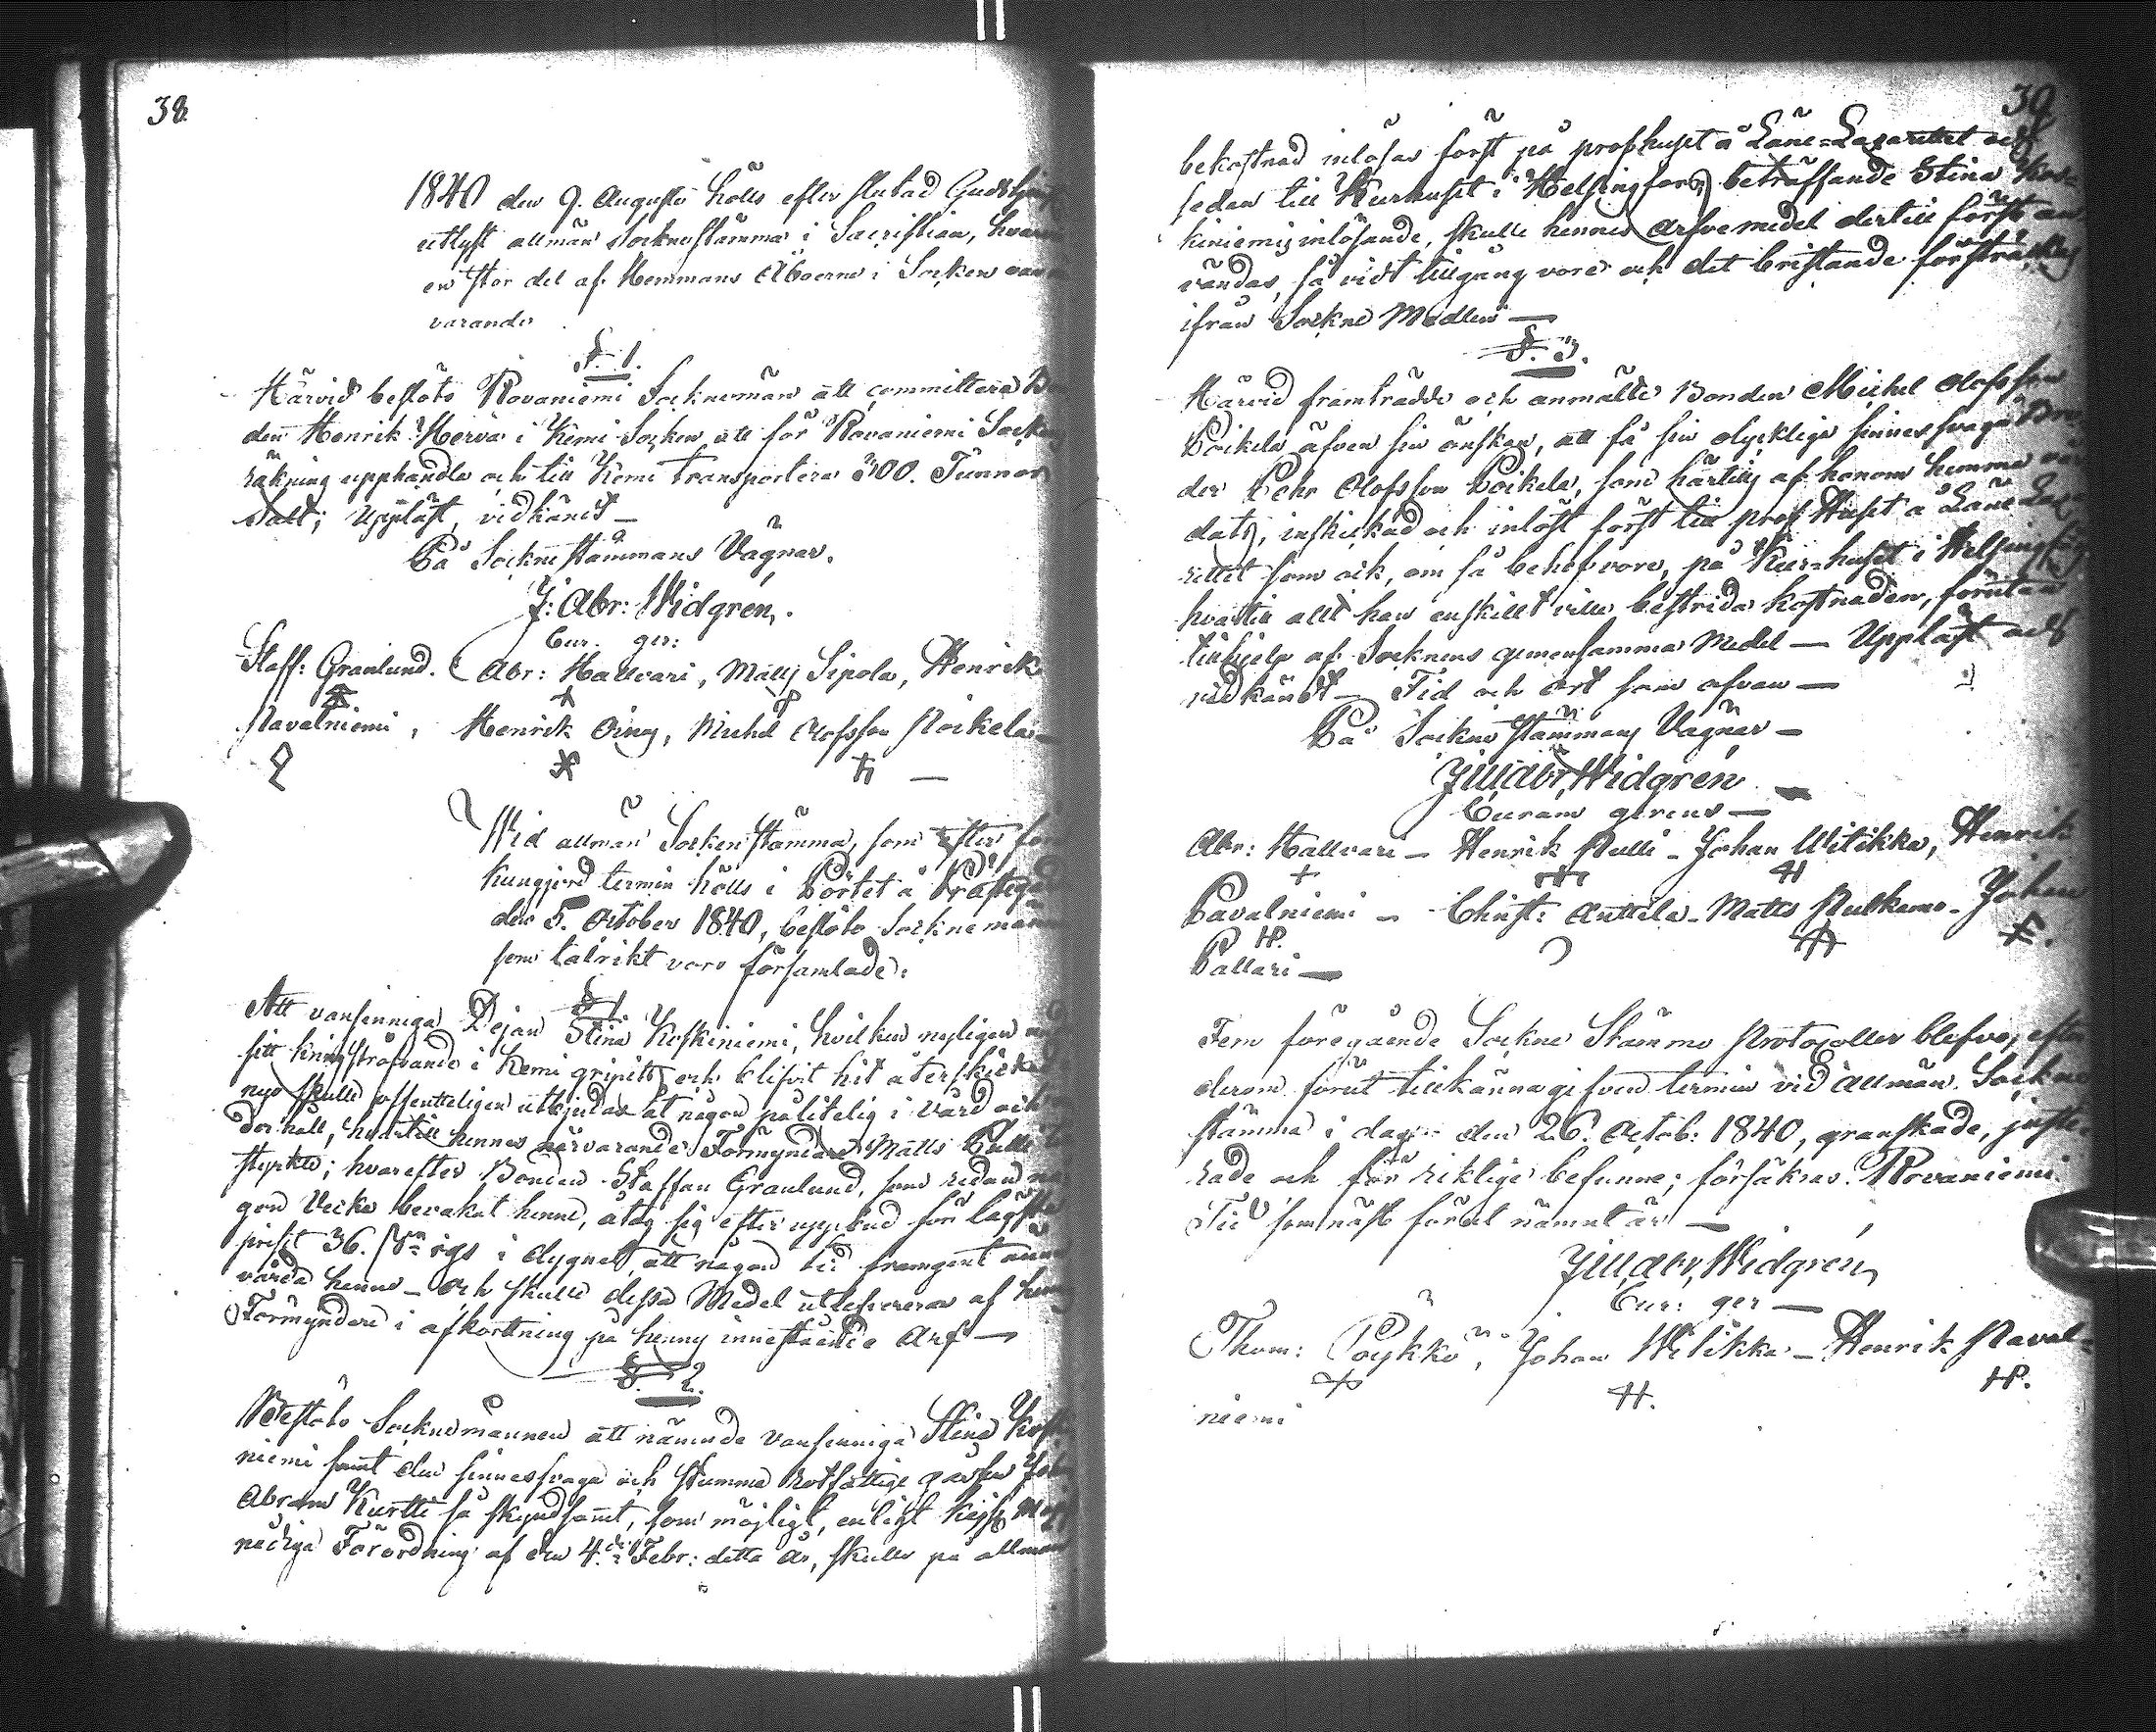 38.
1840 den 9. Augusti hölls efter slutad Gudstjenst
utlyst allmän Socknestämma i Sacristian, hvarvid
en stor del af Hemmans Åboerne i Socken voro när
varande
§. 1.
Härvid beslöto Rovaniemi Socknemän att committera Bon
den Henrik Herva i Kemi Socken att för Rovaniemi Sockens
räkning upphandla och till Kemi transportera 300. Tunnor
salt; Uppläst, vidkändt —
På Socknestämmans Vägnar.
J: Abr: Widgren,.
Cur. ger:
Staff: Granlund. Abr: Hallvari, Matts Sipola, Henrik
Pavalniemi, Henrik Oinas, Michel Olofsson Poikela —
Wid allmän Sockenstämma, som efter för
kungjord termin hölls i Pörtet å Prästegår
den 5. October 1840, beslöto Socknemännen
som talrikt voro församlade:
§ 1.
Att vansinniga Pejan Stina Koskiniemi, hvilken nyligen
sitt kringströfvande i Kemi gripits och blifvit hit återskickad
nyo skulle offentteligen utbjudas åt någon pålitelig i vård och
derhåll, hvartill hennes närvarande Förmyndare Matts Pulli
styrkte; hvarefter Bonden Staffan Granlund, som redan nå
gon Vecka bevakat henne, åtog sig efter uppbud för lägsta
priset 36. rgs i dygnet, att någon tid framgent
vårda henne — och skulle dessa Medel utlefvereras af hennes
Förmyndere i afkortning på hennes inneståënde Arf —
§. 2.
Beslöto Socknemännen att nämnde vansinniga Stina Koski
niemi samt den sinnessvaga och stumma rotfattige gossen Joh
Abram Kurtti så skyndsamt, som möjligt, enligt Kejs. Maj
nådiga Förordning af den 4.de Febr: detta år, skulle på allmän
39
bekostnad inlösas först på profhuset å Läne-Lazarettet och
sedan till Kurhuset i Helsingfors, beträffande Stina Kos-
kiniemis inlösande, skulle hennes arfvemedel dertill först an
vändas, så vidt tillgång vore och det bristande försträckas
ifrån Sockne Medlen —
§. 3.
Härvid framträdde och anmälte Bonden Michel Olofsson
Poikela äfven sin önskan, att få sin olycklige sinnessvaga Bro
der Pehr Olofsson Poikela, som härtills af honom hemma vår
dats, inskickad och inlöst först till prof Huset å Läne Laza
rettet som ock, om så behof vore, på Kur-huset i Helsingfors
hvartill allt han enskillt ville bestrida kostnaden, förutan
tillhjelp af Socknens gemensamma Medel — Uppläst och
vidkändt — Tid och ort som ofvan —
På Sockne stämmans Vägnar —
Joh Abr, Widgren —
Curam gerens —
Abr: Hallvari — Henrik Pulli — Johan Witikka, Henrik
Pavalniemi — Christ: Anttila — Matts Pulkamo — Johan
Pallari —
Fem föregående Sockne Stämmo Protocoller blefvo, efter
derom förut tillkännagifven termin vid Allmän Sockne
stämma i dag den 26. Octob: 1840, granskade, juste
rade och för riktige befunne; försäkras. Rovaniemi
Tid som näst förut nämnt är —
Joh Abr, Widgren,
Cur: ger —
Thom: Pöykkö, Johan Witikka — Henrik Paval-
niemi